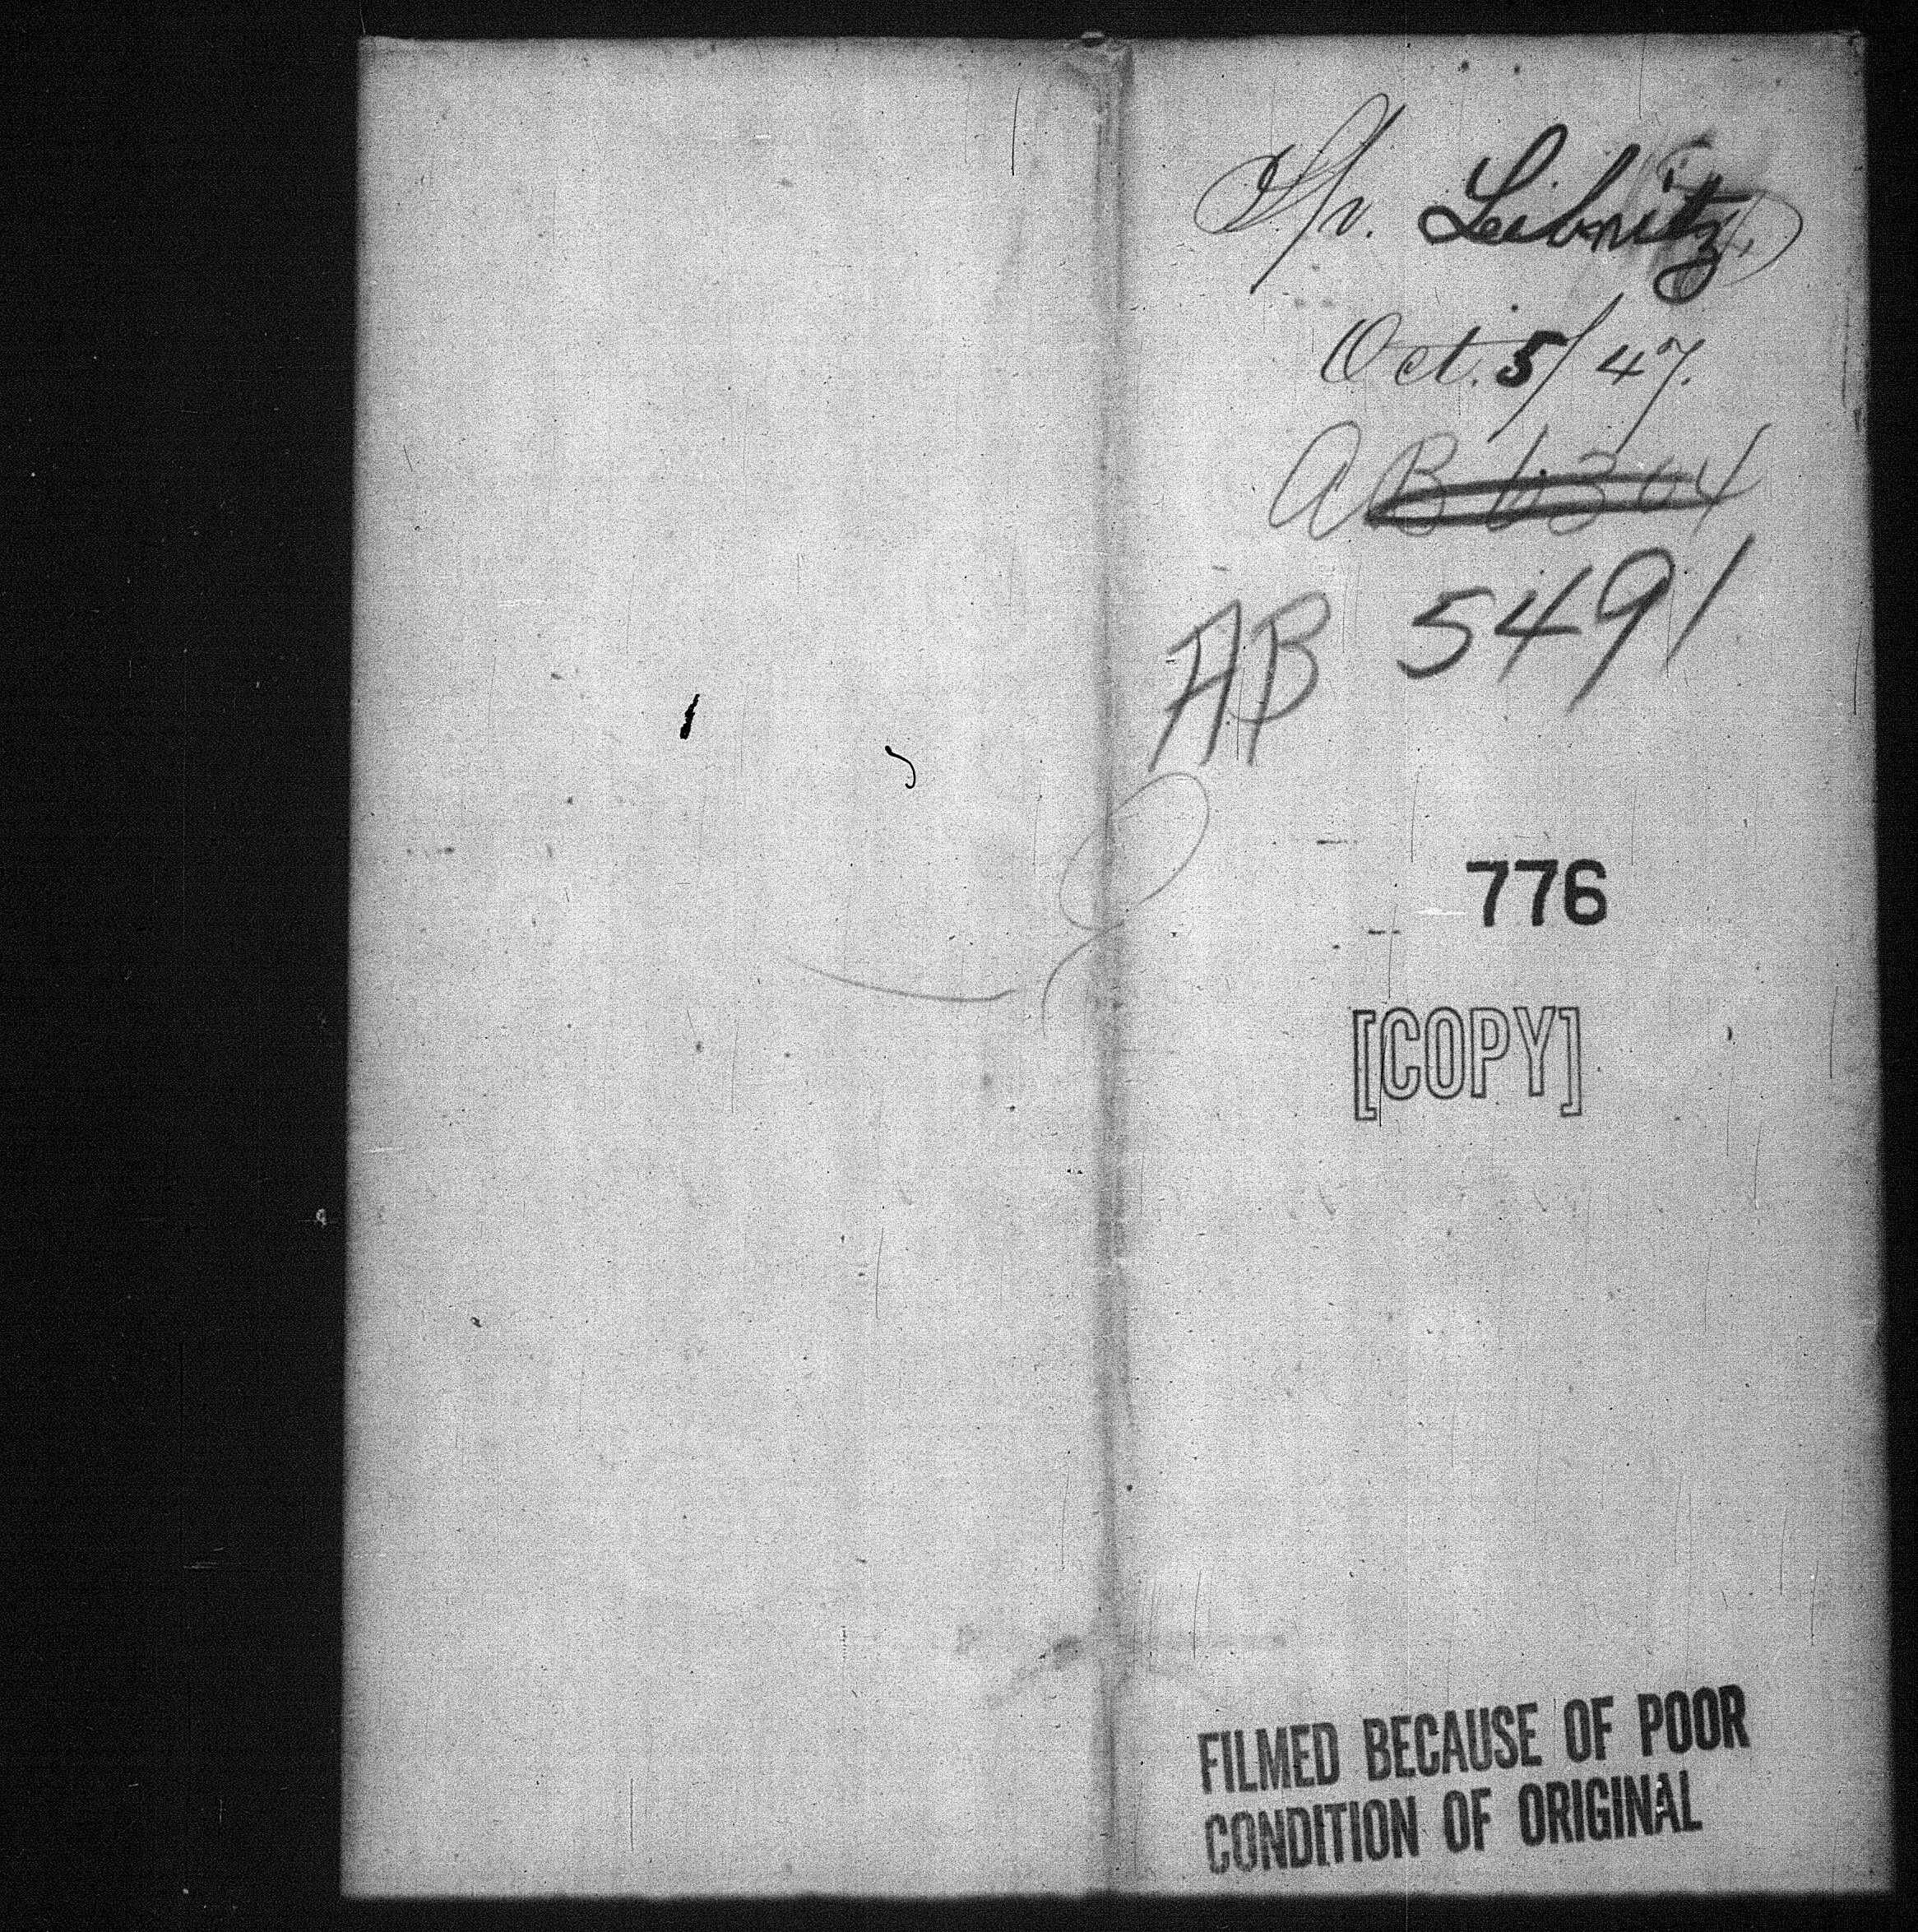 S/v. Leibnitz
Oct. 5/47.
AB 6304
AB 5491
776
[COPY]
FILMED BECAUSE OF POOR
CONDITION OF ORIGINAL